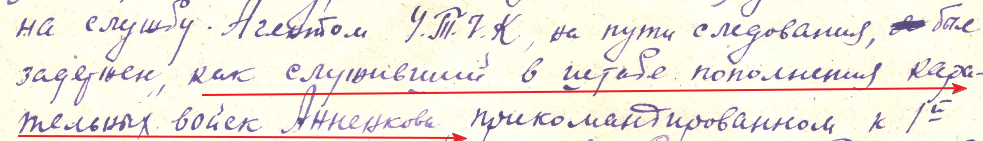 на службу. Агентом У.Т.Ч.К, на пути следования, был
задержен, как служивший в штабе пополнения кара-
тельных войск Анненкова, прикомандированном к 1ой